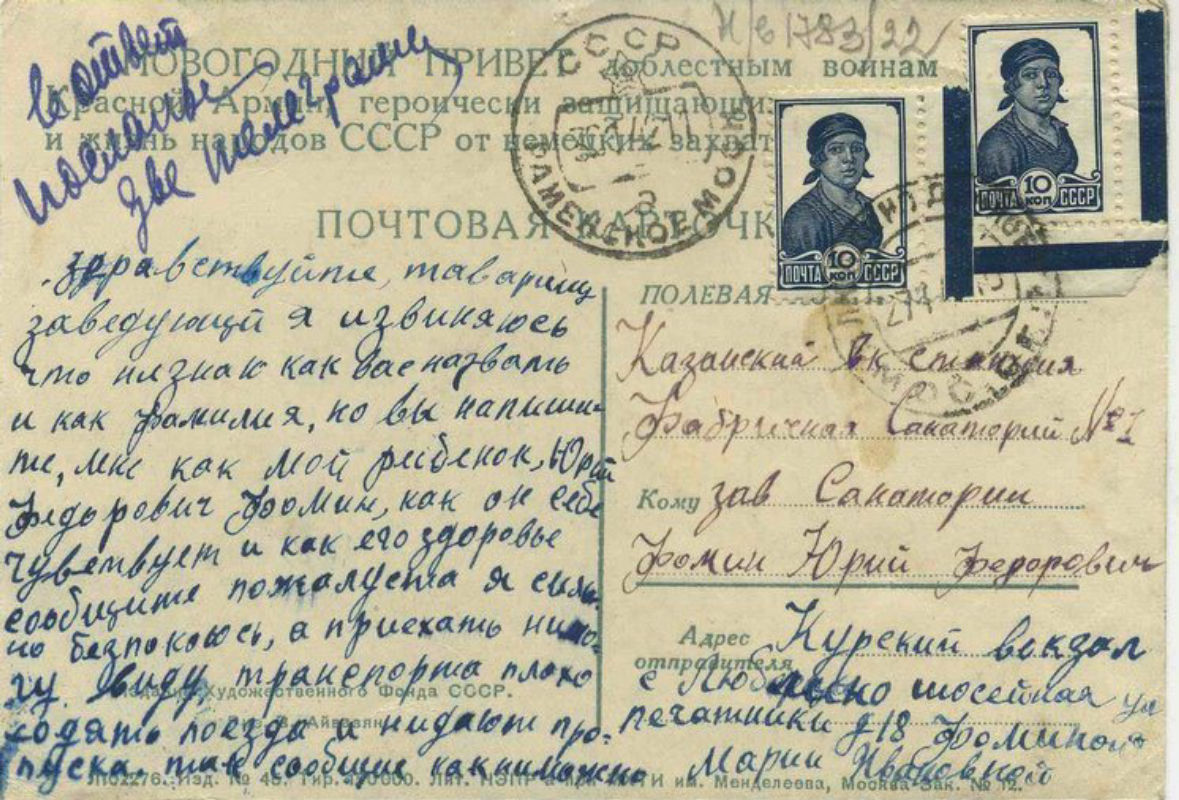 И/6 1783/22
в ответ
послать
две телеграммы
НОВОГОДНИЙ ПРИВЕТ доблестным воинам
Красной Армии, героически защищающим
и жизнь народов СССР от немецких захват
ПОЧТОВАЯ КАРТОЧК
СССР
РАМЕНСКОЕ МОСК
ПОЧТА 10 КОП СССР
ПОЧТА 10 КОП СССР
здравствуйте, таварищ
заведующий я извиняюсь
что низнаю как вас назвать
и как фамилия, но вы напиши-
те, мне как мой ребенок, Юрий
Федорович Фомин, как он себе
чувствует и как его здоровье
сообщите пожалуста я силь-
но безпокоюсь, а приехать нимо-
гу. ввиду транспорта плохо
ходять поезда и нидают про-
пуска так сообщие как ниможно
Издание Художественного Фонда СССР.
Рис. В. Айвазян
Л102276. Изд. № 45. Тир. 400000. Лит. НЭПР а при МХТИ им. Менделеева, Москва Зак. № 12.
ПОЛЕВАЯ
Казанский вк станция
Фабричная Санаторий №1
Кому зав Санатории
Фомин Юрий Федорович
Адрес
отправителя
Курский вокзал
с Люблино шосейная ул
печатники д 18 Фоминой
Марии Ивановной